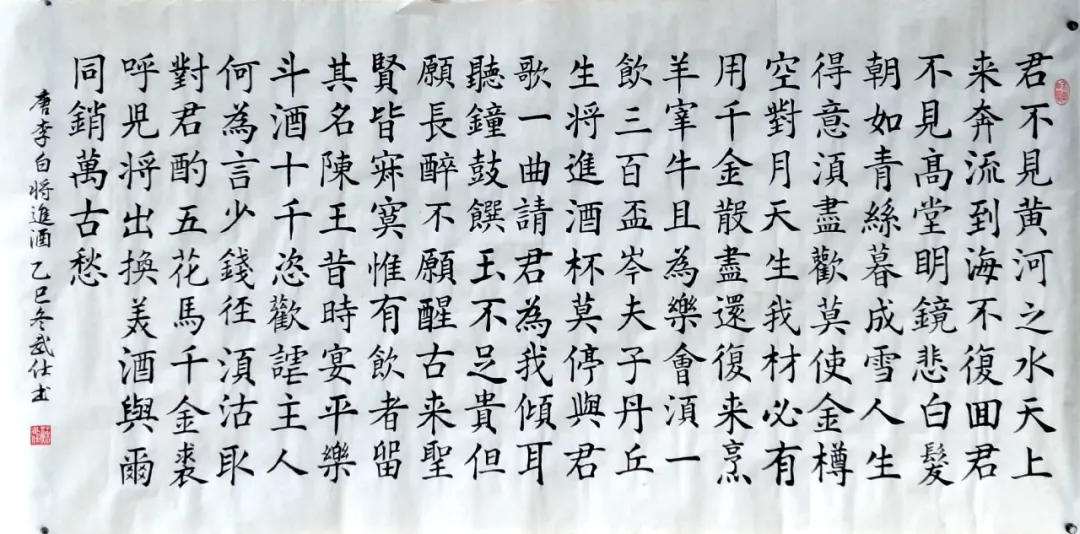 君不見黄河之水天上
来奔流到海不復囬君
不見髙堂明鏡悲白髮
朝如青絲暮成雪人生
得意湏盡歡莫使金樽
空對月天生我材必有
用千金散盡還復来烹
羊宰牛且為樂會湏一
飲三百盃岑夫子丹丘
生将進酒杯莫停與君
歌一曲請君為我傾耳
聽鐘鼓饌玉不足貴但
願長醉不願醒古来聖
賢皆寂寞惟有飲者留
其名陳王昔時宴平樂
斗酒十千恣歡謔主人
何為言少錢徑湏沽取
對君酌五花馬千金裘
呼児将出換美酒與爾
同銷萬古愁
唐李白将進酒乙巳冬武仕书